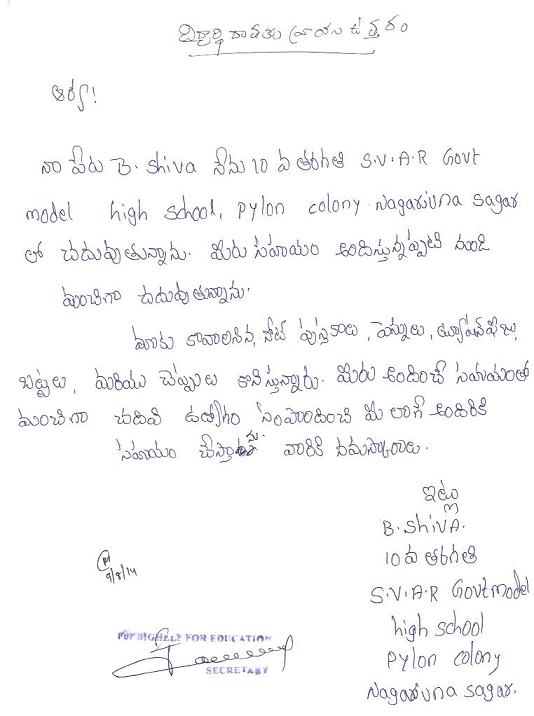 విద్యార్థి రాసిన ఉత్తరం
ఆర్య!
నా పేరు B. Shiva నేను 10 వ తరగతి S.V.A.R Govt
model high school, pylon colony Nagarjuna sagar
లో చదువుతున్నాను. మీరు సహాయం అందిస్తున్నప్పటి నుండి
మంచిగా చదువుతున్నాను.
మాకు కావాలసిన నోట్ పుస్తకాలు, పెన్నులు, ట్యూషన్ ఫీజు,
బట్టలు, మరియు చెప్పులు కొనిస్తున్నారు. మీరు అందించే సహాయంతో
మంచిగా చదివి ఉద్యోగం సంపాదించి మీ లాగే అందరికి
సహాయం చేస్తాను. వారికి నమస్కారాలు.
ఇట్లు
B. Shiva.
10 వ తరగతి
S.V.A.R Govt model
high school
pylon colony
Nagarjuna sagar.
9/8/14
For BIGHELP FOR EDUCATION
SECRETARY